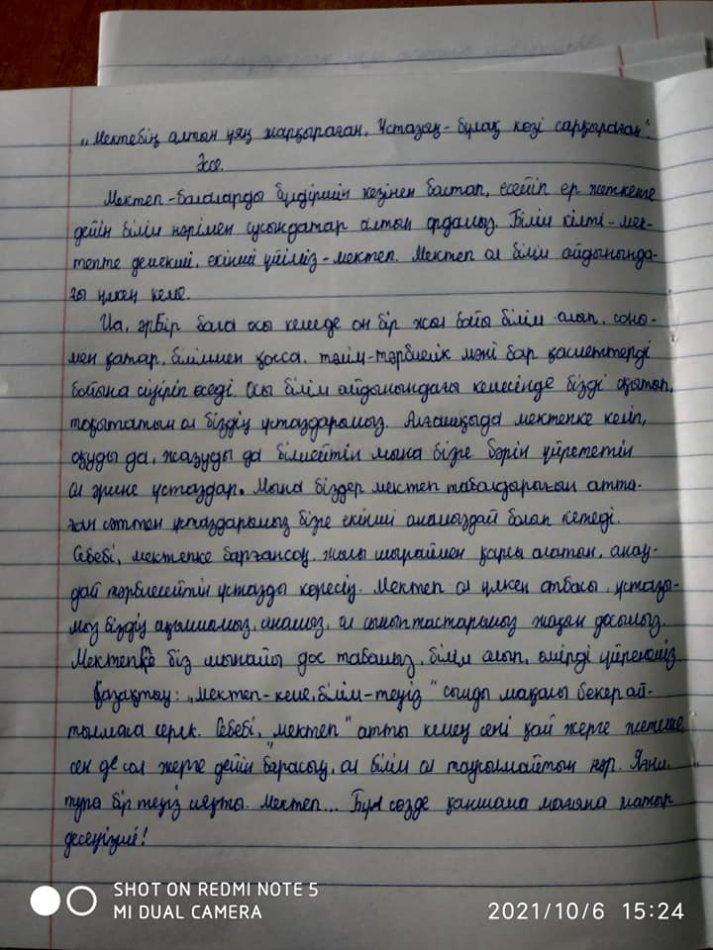 „Мектебің алтын ұяң жарқыраған, Ұстазың - бұлақ көзі сарқыраған".
Эссе.
Мектеп - балаларды бүлдіршін кезінен бастап, есейіп ер жеткенге
дейін білім нәрімен сусындатар алтын ордамыз. Білім кілті - мек-
тепте демекші, екінші үйіміз - мектеп. Мектеп ол білім айдынында-
ғы үлкен кеме.
Иа, әрбір бала осы кемеде он бір жыл бойы білім алып, соны-
мен қатар, біліммен қоса, тәлім-тәрбиелік мәні бар қасиеттерді
бойына сіңіріп өседі. Осы білім айдынындағы кемесінде бізді оқытып,
тоқытатын ол біздің ұстаздарымыз. Алғашқыда мектепке келіп,
оқуды да, жазуды да білмейтін мына бізге бәрін үйрететін
ол әрине ұстаздар. Мына біздер мектеп табалдырығын атта-
ған сәттен ұстаздарымыз бізге екінші анамыздай болып кетеді.
Себебі, мектепке барғансоң, жылы шыраймен қарсы алатын, анаң-
дай тәрбиелейтін ұстазды көресің. Мектеп ол үлкен отбасы, ұстазы-
мыз біздің ақылшымыз, анамыз, ол сыныптастарымыз жақын досымыз.
Мектепке біз шынайы дос табамыз, білім алып, өмірді үйренеміз.
Қазақтың: „Мектеп - кеме, білім - теңіз" сынды мақалы бекер ай-
тылмаса керек. Себебі, „мектеп" атты кемең сені қай жерге жетелесе,
сен де сол жерге дейін барасың, ол білім ол таусылмайтын нәр. Яғни,
тура бір теңіз ияқты. Мектеп... Бұл сөзде қаншама мағына жатыр
десеңізші!
SHOT ON REDMI NOTE 5
MI DUAL CAMERA
2021/10/6 15:24